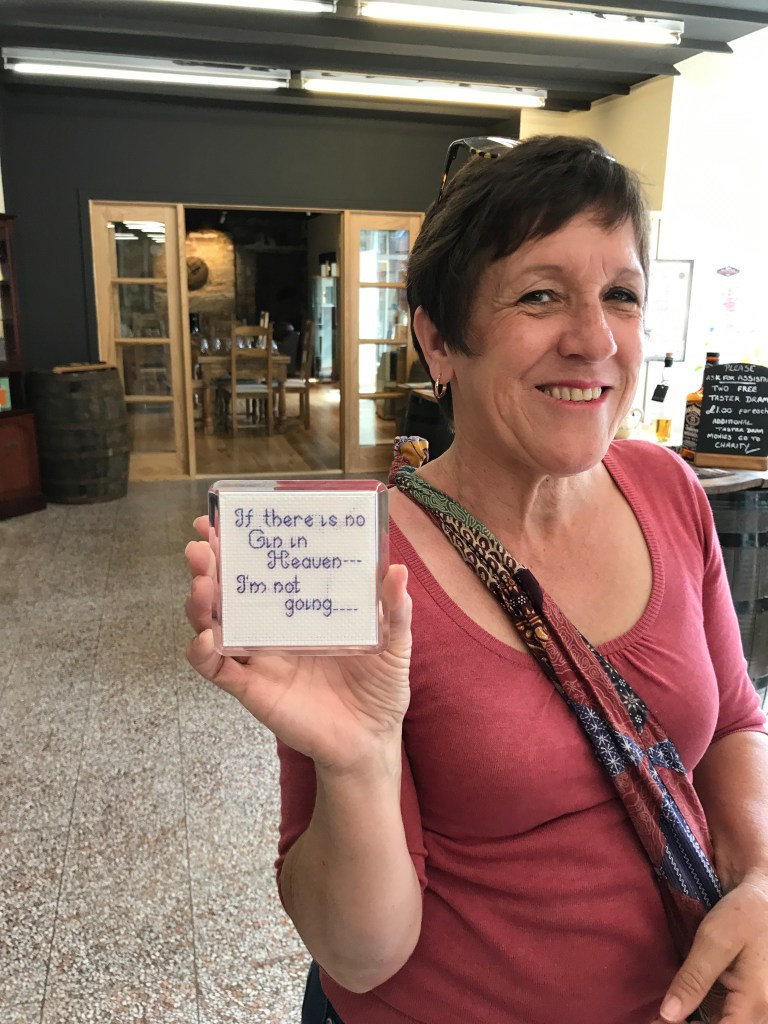 If there is no
Gin in
Heaven---
I'm not
going----
PLEASE
ASK FOR ASSIST
TWO FREE
TASTER DRAM
£1.00 per each
ADDITIONAL
TASTER DRAM
MONIES GO TO
CHARITY